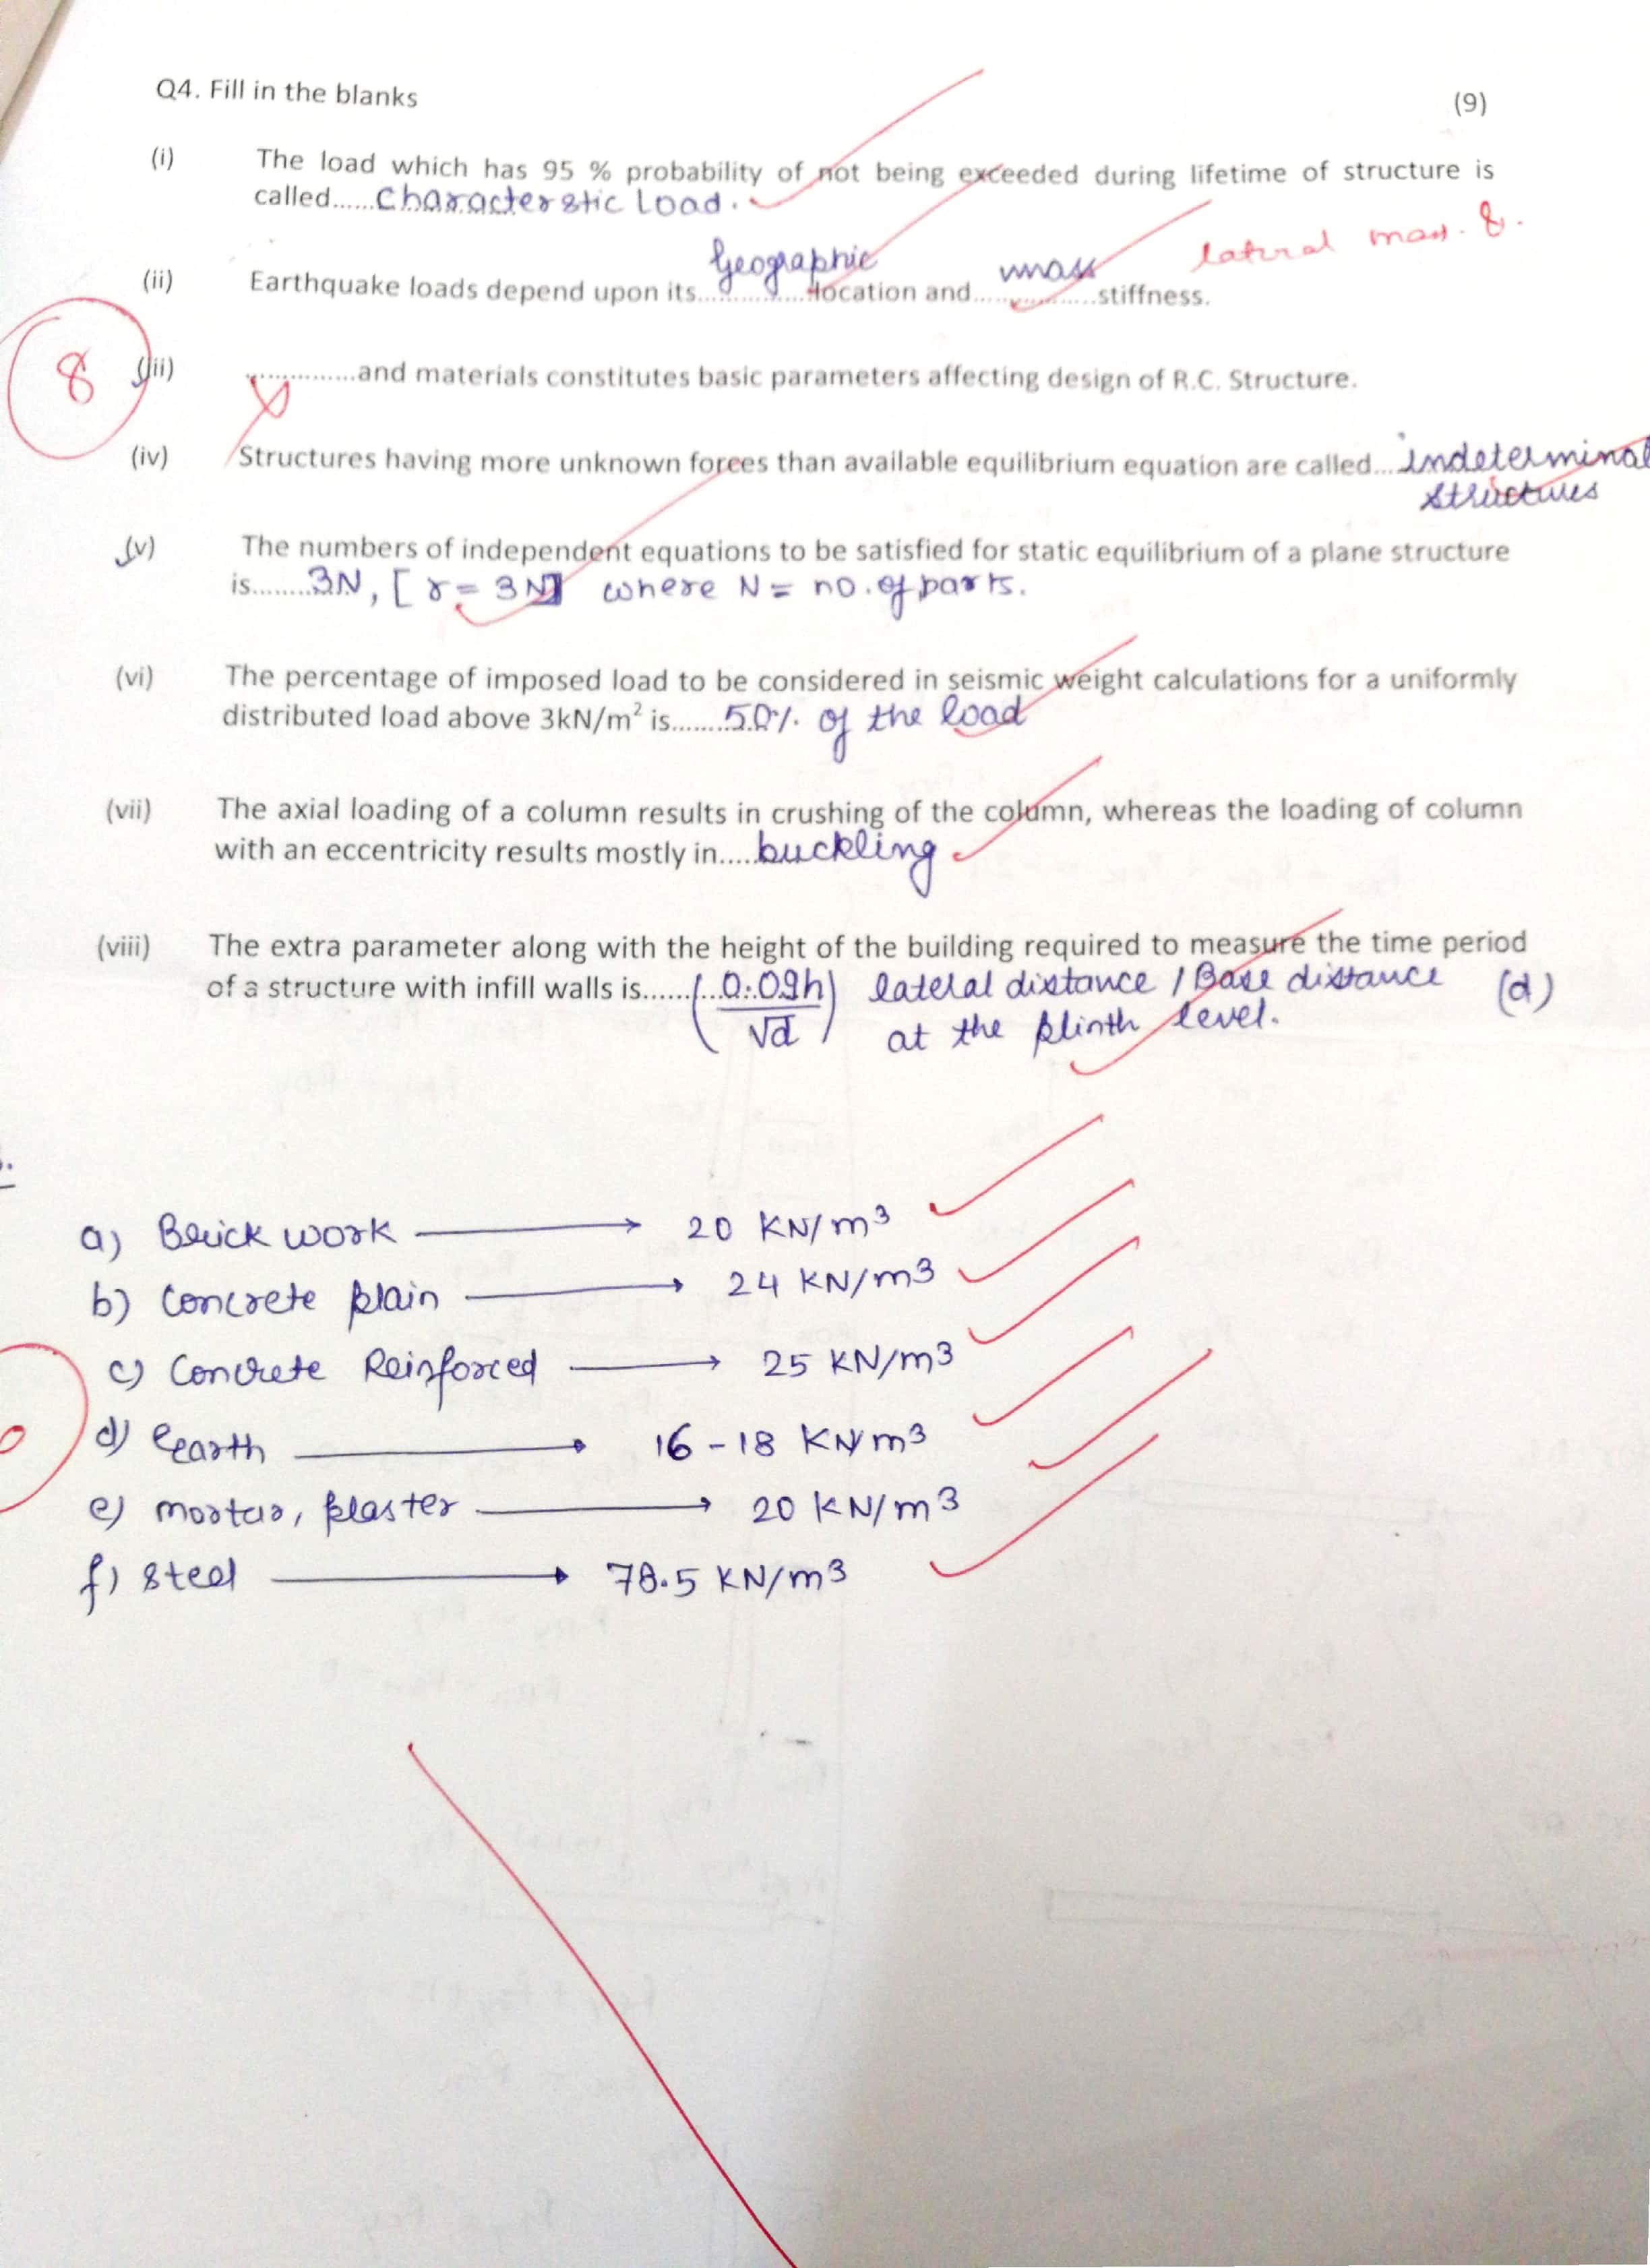 Q4. Fill in the blanks (9)
(i) The load which has 95 % probability of not being exceeded during lifetime of structure is
called......Characterstic Load.
lateral mass. &.
Geographic mass
(ii) Earthquake loads depend upon its..............location and................stiffness.
8
(iii) ..............and materials constitutes basic parameters affecting design of R.C. Structure.
(iv) Structures having more unknown forces than available equilibrium equation are called...indeterminat
structures
(v) The numbers of independent equations to be satisfied for static equilibrium of a plane structure
is........3N, [r = 3N] where N = no. of parts.
(vi) The percentage of imposed load to be considered in seismic weight calculations for a uniformly
distributed load above 3kN/m² is.......50% of the load
(vii) The axial loading of a column results in crushing of the column, whereas the loading of column
with an eccentricity results mostly in.....buckling
(viii) The extra parameter along with the height of the building required to measure the time period
of a structure with infill walls is......(0.09h/√d) lateral distance / Base distance (d)
at the plinth level.
a) Brick work → 20 KN/m3
b) Concrete plain → 24 KN/m3
c) Concrete Reinforced → 25 KN/m3
d) Earth → 16-18 KN/m3
e) mortar, plaster → 20 KN/m3
f) steel → 78.5 KN/m3